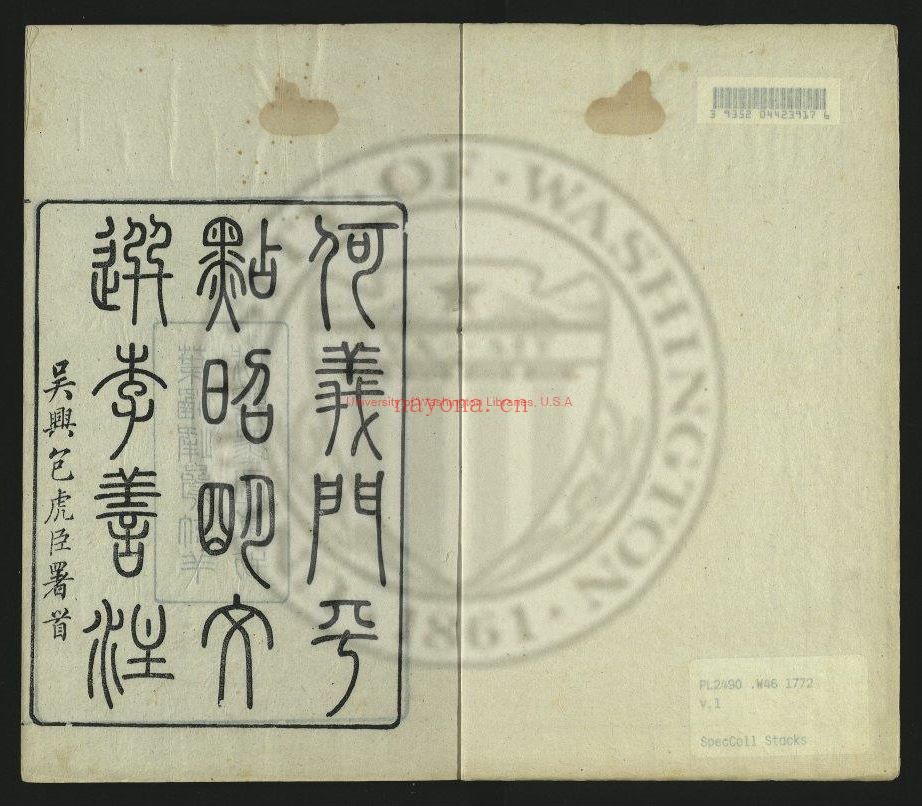 何義門平
點昭明文
選李善注
吳興包虎臣署首
3 9352 04423917 6
OF WASHINGTON
1861
University of Washington Libraries, U.S.A
nayona.cn
PL2490 .W46 1772
v.1
SpecColl Stacks